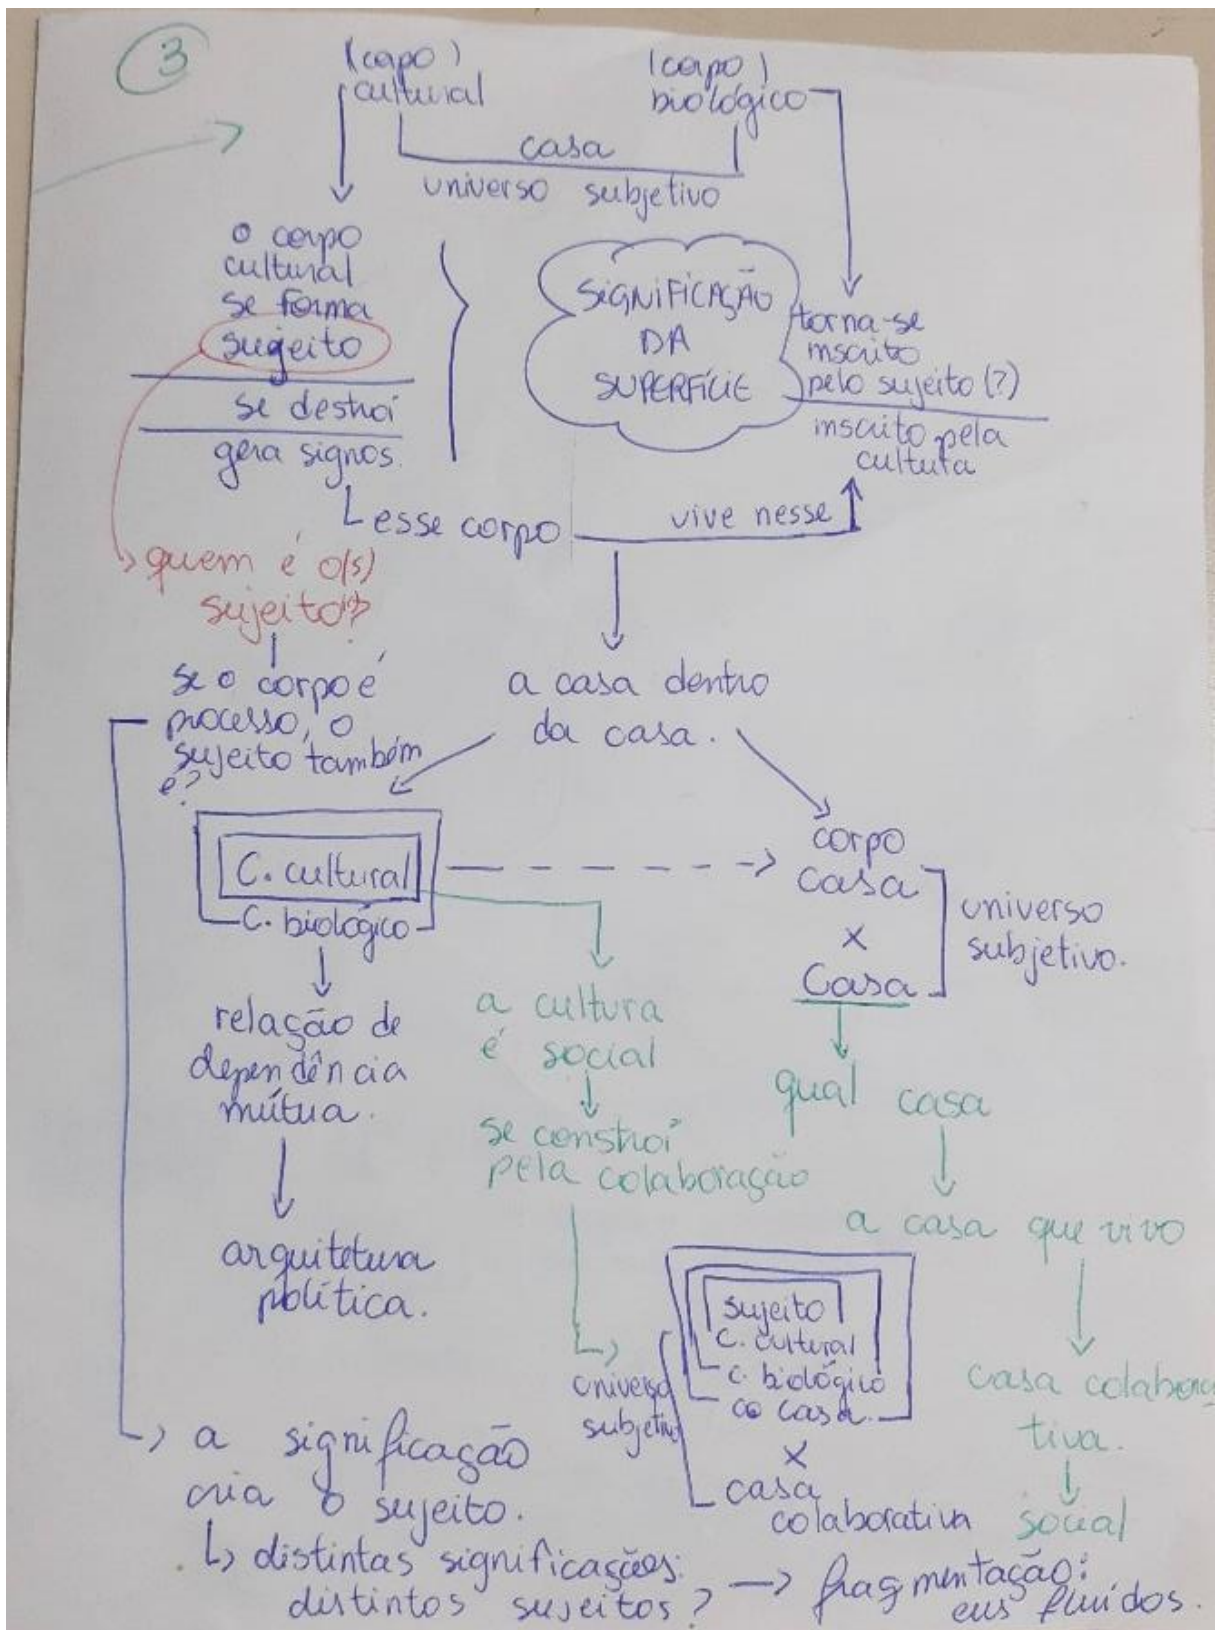 3
(corpo)
cultural
(corpo)
biológico
casa
universo subjetivo
o corpo
cultural
se forma
sujeito
se destrói
gera signos.
SIGNIFICAÇÃO
DA
SUPERFÍCIE
torna-se
inscrito
pelo sujeito (?)
inscrito pela
cultura
esse corpo
vive nesse
quem é o(s)
sujeito(s)?
se o corpo é
processo, o
sujeito também
é?
a casa dentro
da casa.
C. cultural
C. biológico
corpo
casa
x
Casa
universo
subjetivo.
relação de
dependência
mútua.
arquitetura
política.
a cultura
é social
se constrói
pela colaboração
qual casa
a casa que vivo
casa colabora
tiva.
social
universo
subjetivo
sujeito
C. cultural
C. biológico
co casa
x
casa
colaborativa
a significação
cria o sujeito.
distintas significações:
distintos sujeitos? → fragmentação:
eus fluídos.